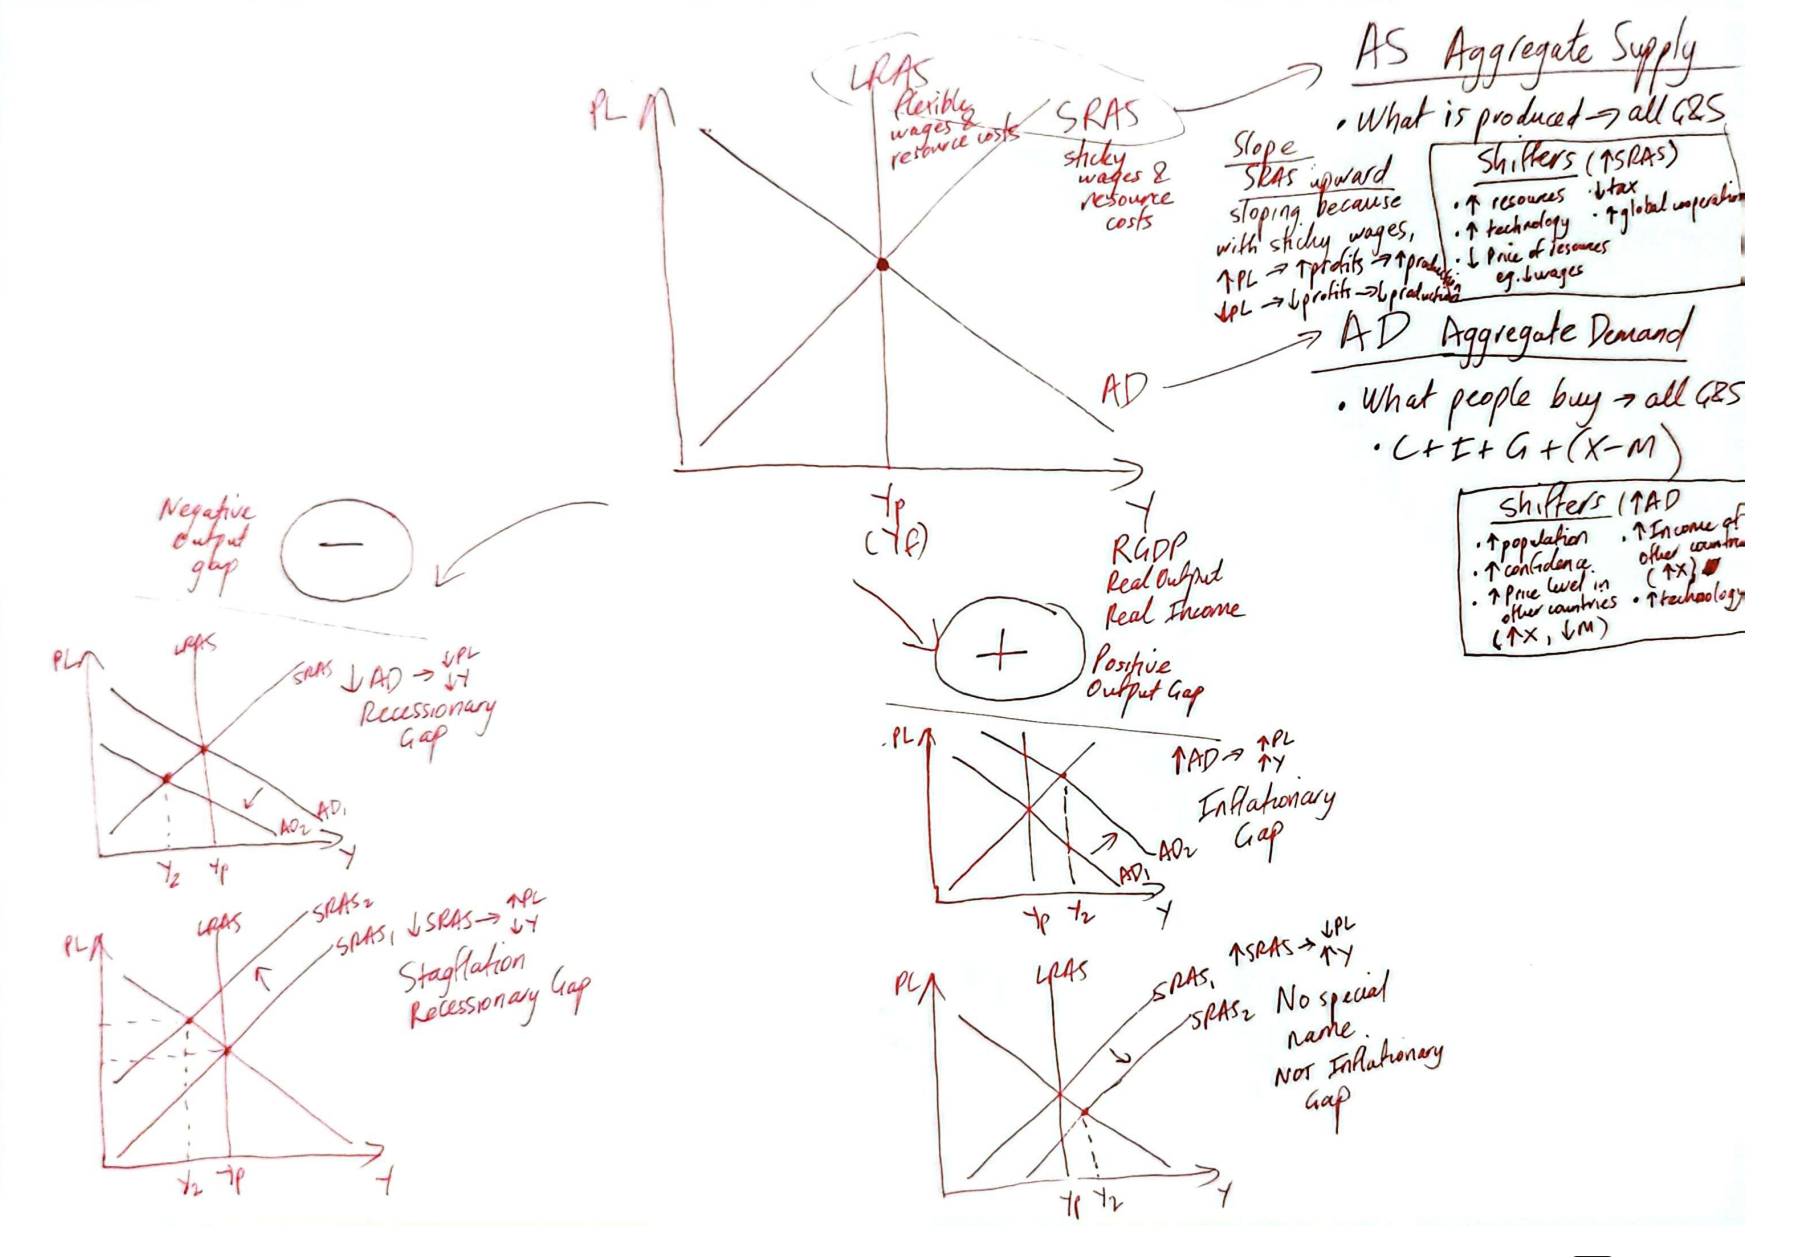 PL
LRAS
Flexible
wages &
resource costs
SRAS
sticky
wages &
resource
costs
AD
Yp
(Yf)
Y
RGDP
Real Output
Real Income
AS Aggregate Supply
• What is produced → all G&S
Slope
SRAS upward
sloping because
with sticky wages,
↑PL → ↑profits → ↑production
↓PL → ↓profits → ↓production
Shifters (↑SRAS)
• ↑ resources
• ↑ technology
• ↓ Price of resources
eg. ↓wages
• ↓tax
• ↑global cooperation
AD Aggregate Demand
• What people buy → all G&S
• C + I + G + (X-M)
Shifters (↑AD
• ↑population
• ↑confidence.
• ↑Price level in
other countries
(↑X, ↓M)
• ↑Income of
other countries
(↑X)
• ↑technology
Negative
Output
gap
−
PL
LRAS
SRAS
↓AD → ↓PL
↓Y
Recessionary
Gap
AD1
AD2
Y2
Yp
Y
PL
LRAS
SRAS2
SRAS1
↓SRAS → ↑PL
↓Y
Stagflation
Recessionary Gap
Y2
Yp
Y
+
Positive
Output Gap
PL
↑AD → ↑PL
↑Y
Inflationary
Gap
AD2
AD1
Yp
Y2
Y
PL
LRAS
SRAS1
SRAS2
↑SRAS → ↓PL
↑Y
No special
name.
NOT Inflationary
Gap
Yp
Y2
Y